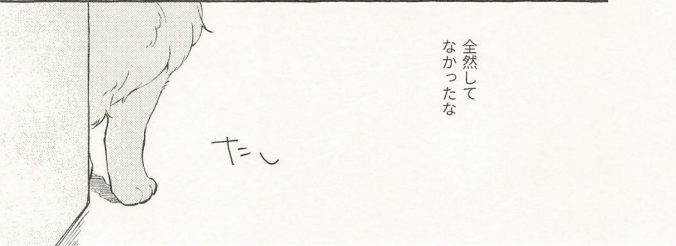 全然して
なかったな
たし